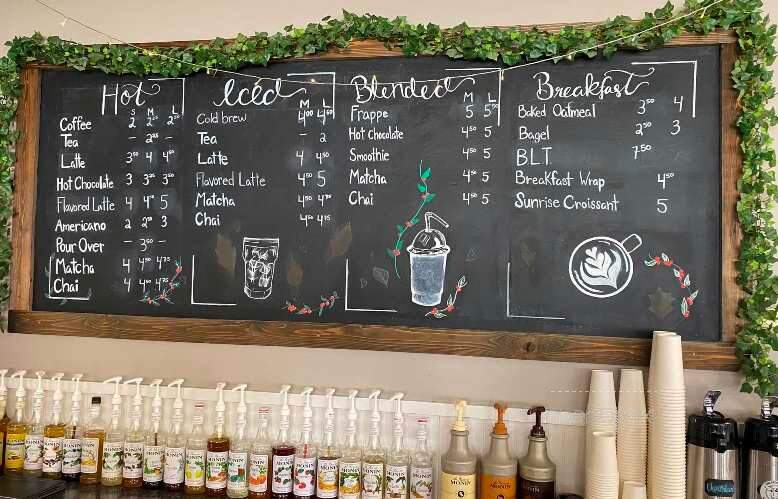 Hot
S M L
Coffee 2 2²⁵ 2⁵⁰
Tea - 2²⁵ -
Latte 3⁵⁰ 4 4⁵⁰
Hot Chocolate 3 3²⁵ 3⁵⁰
Flavored Latte 4 4⁵⁰ 5
Americano 2 2⁵⁰ 3
Pour Over - 3⁵⁰ -
Matcha 4 4⁵⁰ 4⁷⁵
Chai 4 4⁵⁰ 4⁷⁵
Iced
M L
Cold brew 4⁰⁰ 4⁵⁰
Tea - 2
Latte 4 4⁵⁰
Flavored Latte 4⁵⁰ 5
Matcha 4⁵⁰ 4⁷⁵
Chai 4⁵⁰ 4⁷⁵
Blended
M L
Frappe 5 5⁵⁰
Hot Chocolate 4⁵⁰ 5
Smoothie 4⁵⁰ 5
Matcha 4⁵⁰ 5
Chai 4⁵⁰ 5
Breakfast
Baked Oatmeal 3⁵⁰ 4
Bagel 2⁵⁰ 3
B.L.T. 7⁵⁰
Breakfast Wrap 4⁵⁰
Sunrise Croissant 5
MONIN